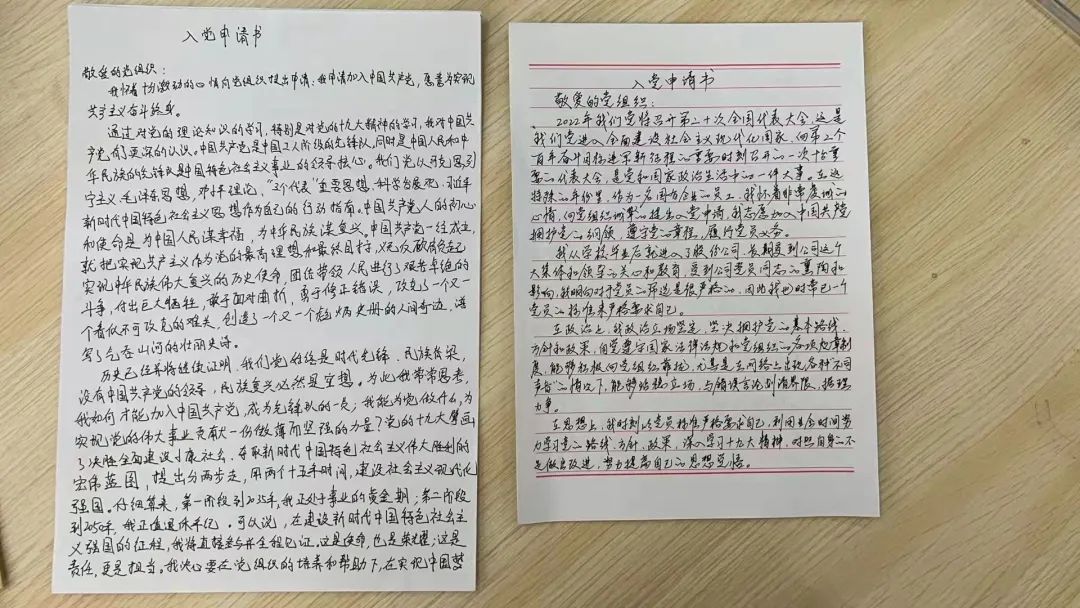 入党申请书
敬爱的党组织：
我怀着十分激动的心情向党组织提出申请：我申请加入中国共产党，愿意为实现
共产主义奋斗终身。
通过对党的理论知识的学习，特别是对党的十九大精神的学习，我对中国共
产党有了更深的认识。中国共产党是中国工人阶级的先锋队，同时是中国人民和中
华民族的先锋队，是中国特色社会主义事业的领导核心。我们党以马克思列
宁主义、毛泽东思想、邓小平理论、“三个代表”重要思想、科学发展观、习近平
新时代中国特色社会主义思想作为自己的行动指南。中国共产党人的初心
和使命是为中国人民谋幸福，为中华民族谋复兴。中国共产党一经成立，
就把实现共产主义作为党的最高理想和最终目标，义无反顾肩负起
实现中华民族伟大复兴的历史使命，团结带领人民进行了艰苦卓绝的
斗争，付出巨大牺牲，敢于面对曲折，勇于修正错误，攻克了一个又一
个看似不可攻克的难关，创造了一个又一个彪炳史册的人间奇迹，谱
写了气吞山河的壮丽史诗。
历史已经并将继续证明，我们党始终是时代先锋、民族脊梁，
没有中国共产党的领导，民族复兴必然是空想。为此我常常思考，
我如何才能加入中国共产党，成为先锋队的一员；我能为党做什么，为
实现党的伟大事业贡献一份微薄而坚强的力量？党的十九大擘画
了决胜全面建设小康社会、夺取新时代中国特色社会主义伟大胜利的
宏伟蓝图，提出分两步走，用两个十五年时间，建设社会主义现代化
强国。仔细算来，第一阶段到2035年，我正处于事业的黄金期；第二阶段
到2050年，我正值退休年纪。可以说，在建设新时代中国特色社会主
义强国的征程，我将直接参与并全程见证。这是使命，也是荣耀；这是
责任，更是担当。我决心要在党组织的培养和帮助下，在实现中国梦
入党申请书
敬爱的党组织：
2022年我们党将召开第二十次全国代表大会，这是
我们党进入全面建设社会主义现代化国家、向第二个
百年奋斗目标进军新征程的重要时刻召开的一次十分重
要的代表大会，是党和国家政治生活中的一件大事。在这
特殊的年份里，作为一名国有企业的员工，我怀着非常虔诚的
心情，向党组织郑重的提出入党申请，我志愿加入中国共产党
拥护党的纲领，遵守党的章程，履行党员义务。
我从学校毕业后就进入了股份公司，长期受到公司这个
大集体和领导的关心和教育，受到公司党员同志的熏陶和
影响，我明白对于党员的筛选是很严格的，因此我也时常已一个
党员的标准来严格要求自己。
在政治上，我政治立场坚定，坚决拥护党的基本路线、
方针和政策，自觉遵守国家法律法规和党组织的各项规章制
度，能够积极向党组织靠拢，尤其是在网络上出现各种“不同
声音”的情况下，能够站稳立场，与错误言论划清界限，据理
力争。
在思想上，我时刻以党员标准严格要求自己，利用业余时间努
力学习党的路线、方针、政策，深入学习十九大精神，对照自身的不
足做出改进，努力提高自己的思想觉悟。